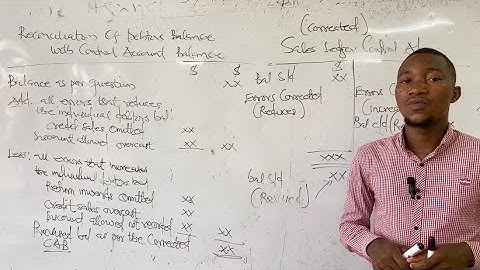 Reconciliation Of Debtors Balance
with Control Account Balance
$ $
Balance as per question xx
Add: all errors that reduces
the individual debtors bal:
Credit sales omitted xx
Discount allowed overcast xx xx
Less: all errors that increases
the individual
Return inwards omitted xx
Credit sales overcast xx
Discount allowed not recorded xx xx
bal as per the Corrected xx
(Corrected)
Sales ledger Control A/c
$
Bal b/d xx
Errors Corrected
(Reduces)
xxx
Bal b/d xx
(Revised)
Errors Co
(Incre
Bal c/d (R